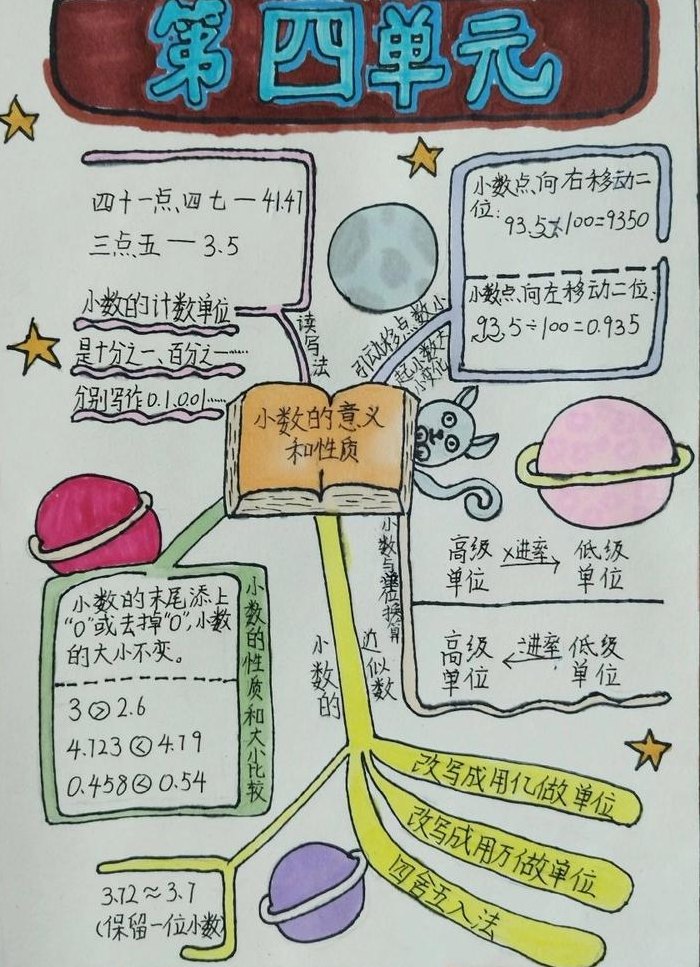 第四单元
四十一点四七 — 41.47
三点五 — 3.5
小数的计数单位
是十分之一、百分之一……
分别写作0.1、0.01……
读写法
小数点向右移动二
位:
93.5×100=9350
小数点向左移动二位:
93.5÷100=0.935
小数点移动引
起小数大
小变化
小数的意义
和性质
小数的末尾添上
“0”或去掉“0”,小数
的大小不变。
3>2.6
4.123<4.19
0.458<0.54
小数的性质和大小比较
小数与单位换算
高级 ×进率 低级
单位 → 单位
高级 进率 低级
单位 ← 单位
小数的
近似数
改写成用亿做单位
改写成用万做单位
四舍五入法
3.72≈3.7
(保留一位小数)